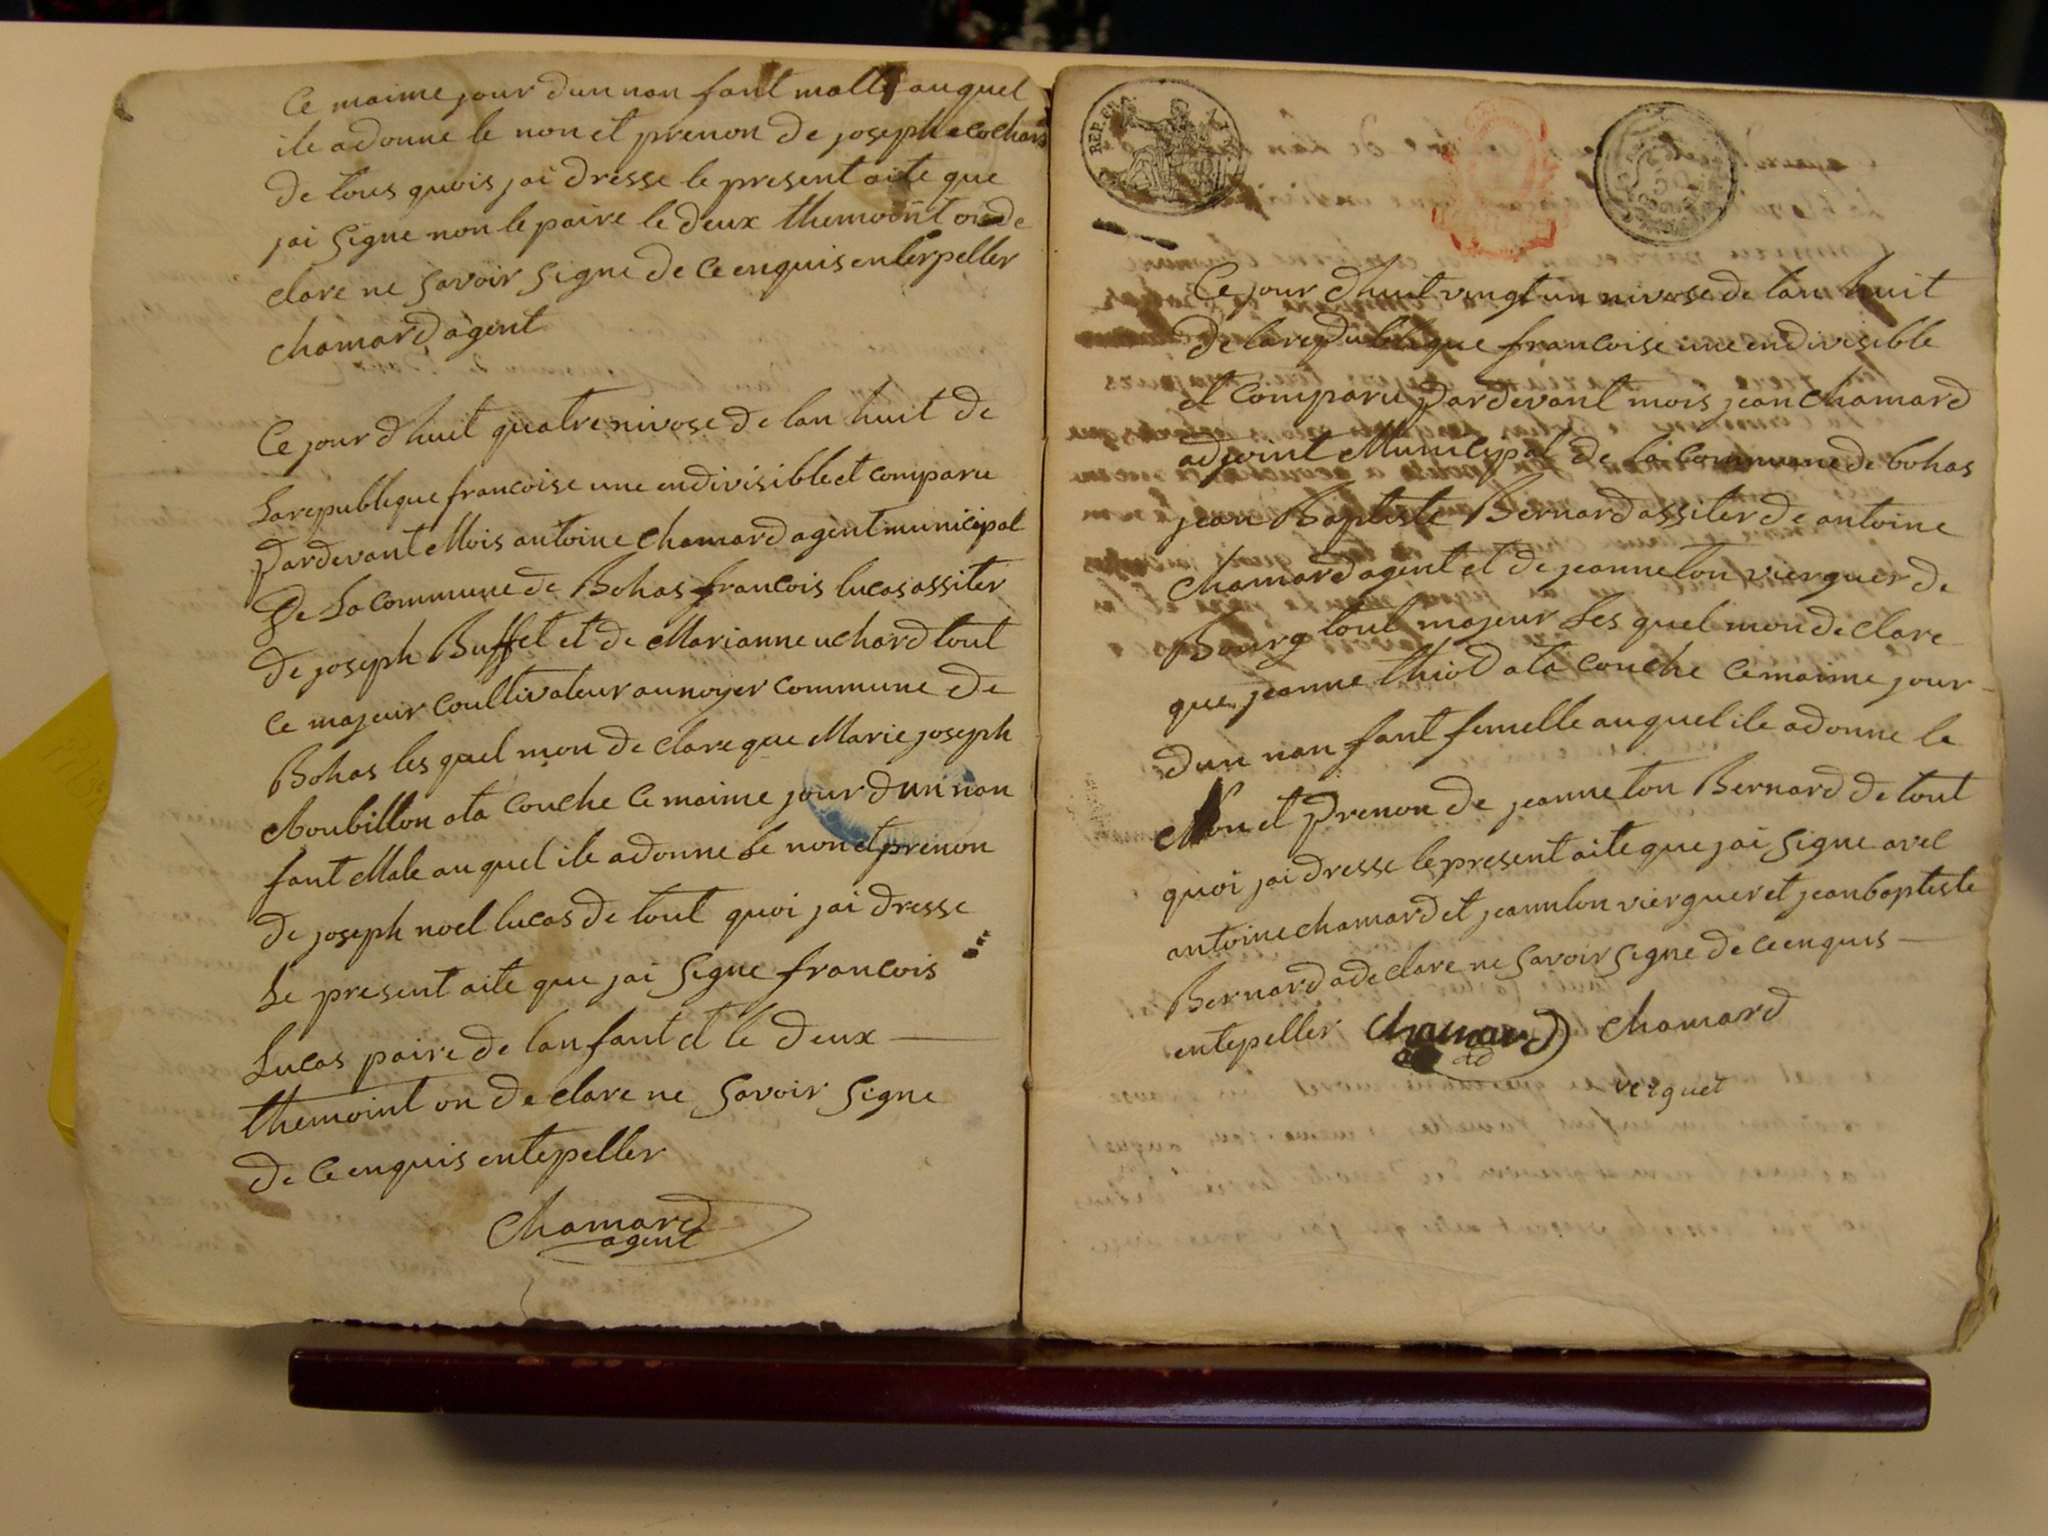 Ce maime jour dun nan fant malle auquel
ile adonne le non et prenon de joseph cochar
de tous quois jai dresse le present aite que
jai signe non le paire le deux themoint on de
clare ne savoir signe de ce enquis enterpeller
chamard agent
Ce jour dhuit quatre nivose de lan huit de
La republique francoise une endivisible et comparu
Pardevant Mois antoine chamard agent municipal
De La commune de Bohas francois lucas assiter
de joseph Buffet et de Marianne uchard tout
ce majeur coultivateur au noyer commune de
Bohas les quel mon de clare que Marie joseph
Moubillon ata couche ce maime jour dun nan
fant Male au quel ile adonne Le non et prenon
de joseph noel lucas de tout quoi jai dresse
Le present aite que jai signe francois
Lucas paire de lan fant et le deux
themoint on declare ne savoir signe
de ce enquis entepeller
chamard
agent
REP. FRA.
Ce jour dhuit vingt un nivose de lan huit
de la republique francoise une endivisible
et comparu Pardevant mois jean chamard
adjoint Municipal de la commune de bohas
jean Baptiste Bernard assiter de antoine
chamard agent et de jeanneton vierguer de
Bourg tout majeur Les quel mon de clare
que jeanne thiod ata couche ce maime jour
dun nan fant femelle au quel ile adonne le
Non et Prenon de jeanneton Bernard de tout
quoi jai dresse le present aite que jai signe avel
antoine chamard et jeannton vierguer et jean baptiste
Bernard adeclare ne savoir signe de ce enquis
entepeller chamard chamard
ad
verguet